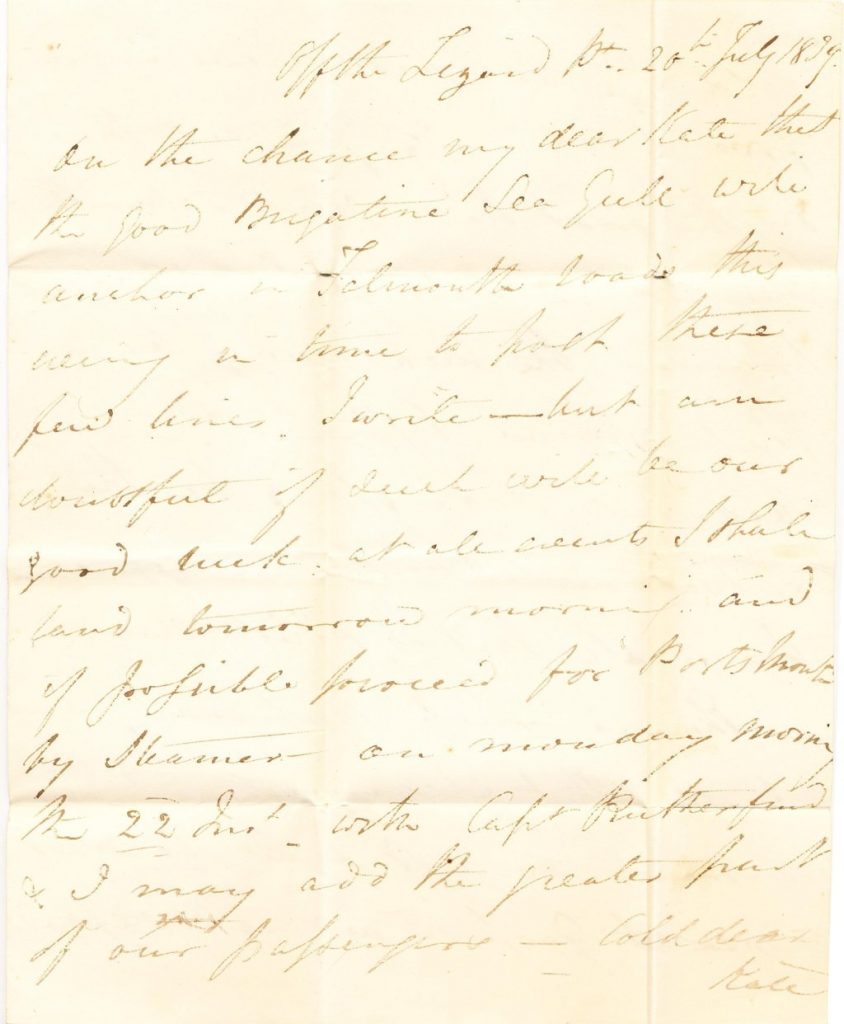 Off the Lizard Pt. 20th July 1839.
On the chance my dear Kate that
the good Brigatine Sea Gull will
anchor in Falmouth roads this
evening in time to post these
few lines, I write — but am
doubtful if such will be our
good luck. at all events I shall
land tomorrow morning and
if possible proceed for Portsmouth
by Steamer on monday morning
the 22 Inst. with Capt Rutherford
& I may add the greater part
of our passengers — Cold dear
Kate